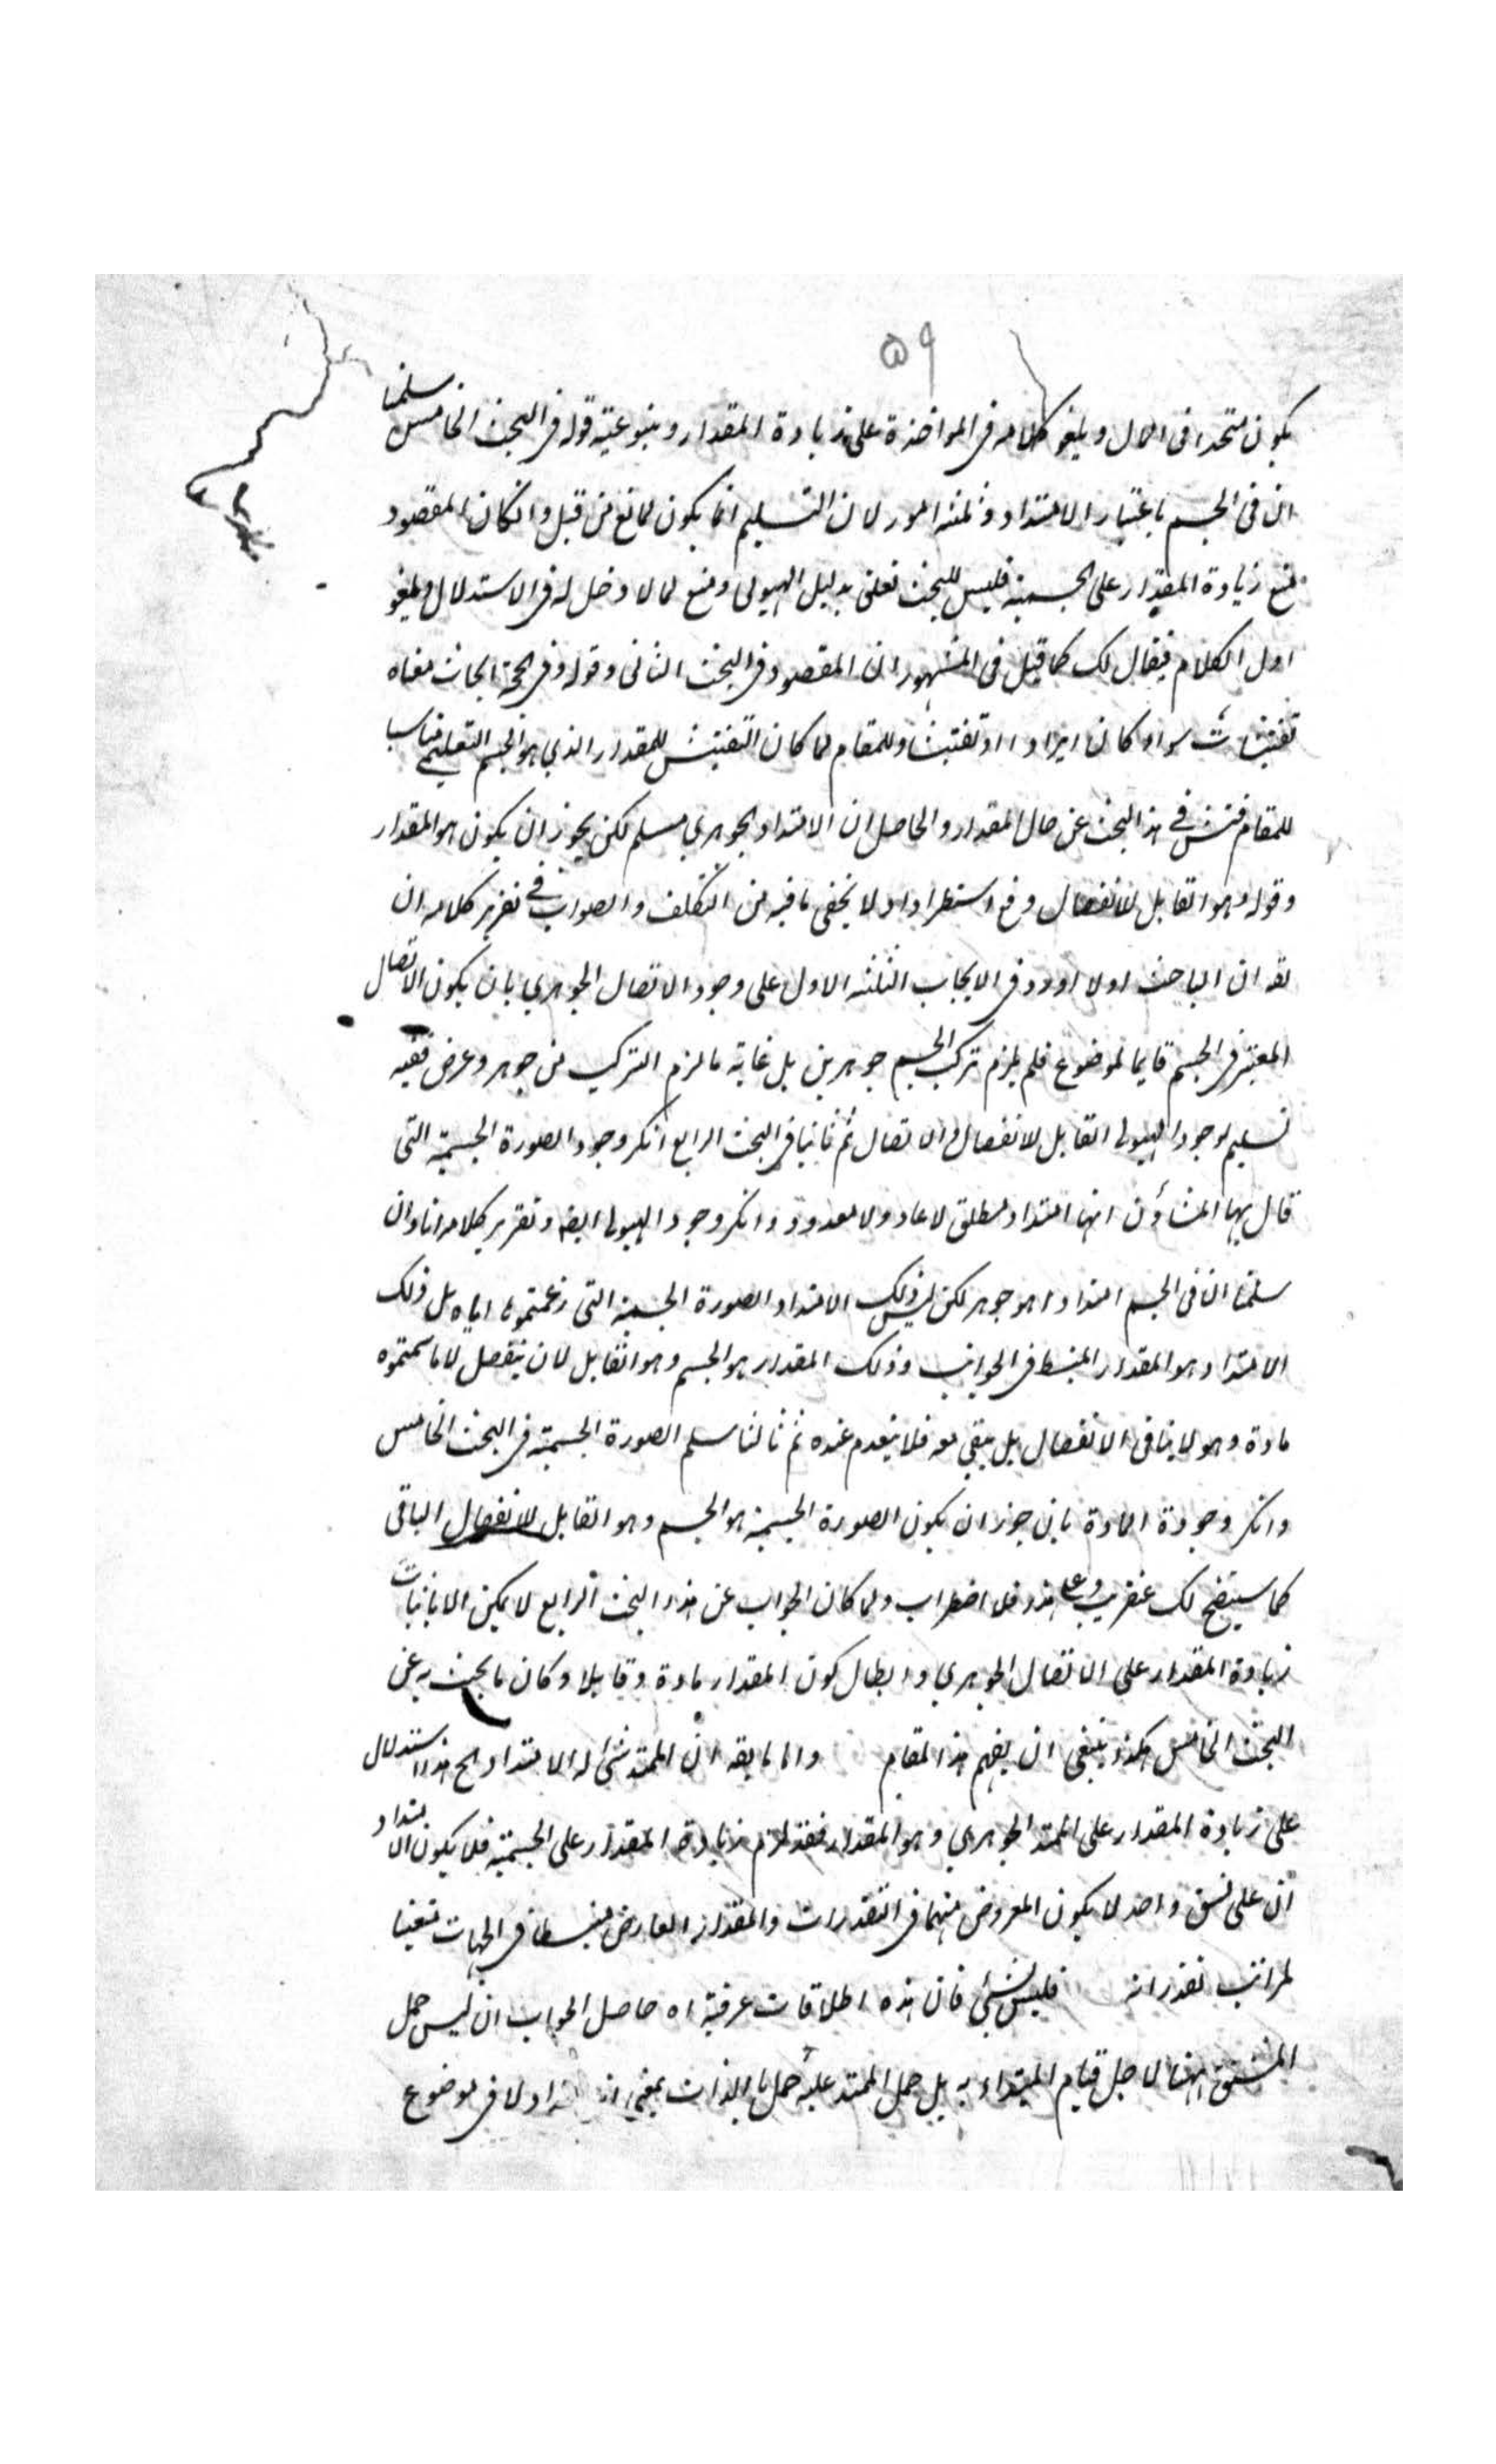 ٥٩
يكون متحدا فى المال ويلغو كلامه فى المواخذة على زيادة المقدار وينبو عنه قوله فى البحث الخامس سلمنا
ان فى الجسم باعتبار الامتداد ثلثة امور لان التسليم انما يكون لما منع من قبل وانكان المقصود
منع زيادة المقدار على الجسمية فليس للبحث تعلق بدليل الهيولى ومنع لما لا دخل له فى الاستدلال ويلغو
اول الكلام فيقال لك كما قيل فى المشهور ان المقصود فى البحث الثانى وقوله وفى الحجة ابحاث معناه
تفتيشات سواء كان ايرادا او تفتيشا وللمقام لما كان التفتيش للمقدار الذي هو الجسم التعليمي مناسبا
للمقام فتش في هذا البحث عن حال المقدار والحاصل ان الامتداد الجوهري مسلم لكن يجوز ان يكون هو المقدار
وقوله وهو القابل للانفصال وقع استطرادا ولا يخفى ما فيه من التكلف والصواب في تقرير كلامه ان
يقه ان الباحث اولا اورد فى الابحاث الثلثه الاول على وجود الاتصال الجوهري بان يكون الاتصال
المعتبر فى الجسم قايما لموضوع فلم يلزم تركب الجسم جوهرين بل غاية ما لزم التركيب من جوهر وعرض ففيه
تسليم لوجود الهيولى القابل للانفصال والاتصال ثم ثانيا فى البحث الرابع انكر وجود الصورة الجسمية التى
قال بها المشاؤن انها امتداد مطلق لا عاد ولا معدود وانكر وجود الهيولى ايضه وتقرير كلامه انا وان
سلمنا ان فى الجسم امتدادا هو جوهر لكن ليس ذلك الامتداد الصورة الجسمية التى زعمتموها اياه بل ذلك
الامتداد هو المقدار المنبسط فى الجوانب وذلك المقدار هو الجسم وهو القابل لان ينفصل لا ما سميتموه
مادة وهو لا ينافى الانفصال بل يبقى معه فلا ينعدم عنده ثم ثالثا سلم الصورة الجسمية فى البحث الخامس
وانكر وجودة المادة بان جوز ان يكون الصورة الجسمية هو الجسم وهو القابل للانفصال الباقى
كما سيتضح لك عنقريب وعلى هذا فلا اضطراب ولما كان الجواب عن هذا البحث الرابع لا يمكن الا باثبات
زيادة المقدار على الاتصال الجوهري وابطال كون المقدار مادة وقابلا وكان ما يجيب به عن
البحث الخامس هكذا ينبغى ان يفهم هذا المقام واما ما يقه ان الممتد شئ له الامتداد الخ هذا استدلال
على زيادة المقدار على الممتد الجوهري وهو المقدار فقد لزم زيادة المقدار على الجسمية فلا يكون الامتداد
ان على نسق واحد لا يكون المعروض منهما فى التقدرات والمقدار العارض منبسطا فى الجهات متعينا
لمراتب تقدراته فليس بشئ فان هذه اطلاقات عرفية اه حاصل الجواب ان ليس حمل
المشتق ههنا لاجل قيام المبتداء به بل حمل الممتد عليه حمل بالذات بمعنى ولا فى موضوع